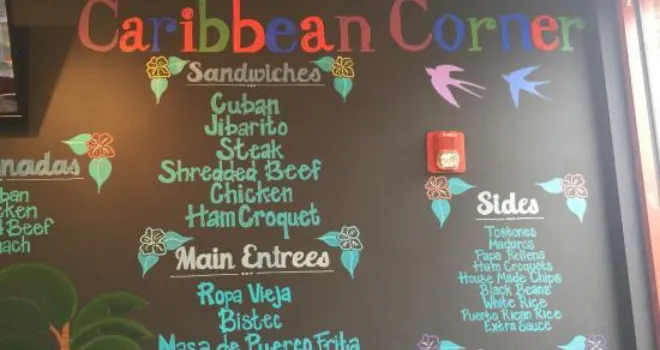 Caribbean Corner
Sandwiches
Cuban
Jibarito
Steak
Shredded Beef
Chicken
Ham Croquet
Main Entrees
Ropa Vieja
Bistec
Masa de Puerco Frita
nadas
ban
cken
d Beef
nach
Sides
Tostones
Maduros
Papa Rellena
Ham Croquets
House Made Chips
Black Beans
White Rice
Puerto Rican Rice
Extra Sauce